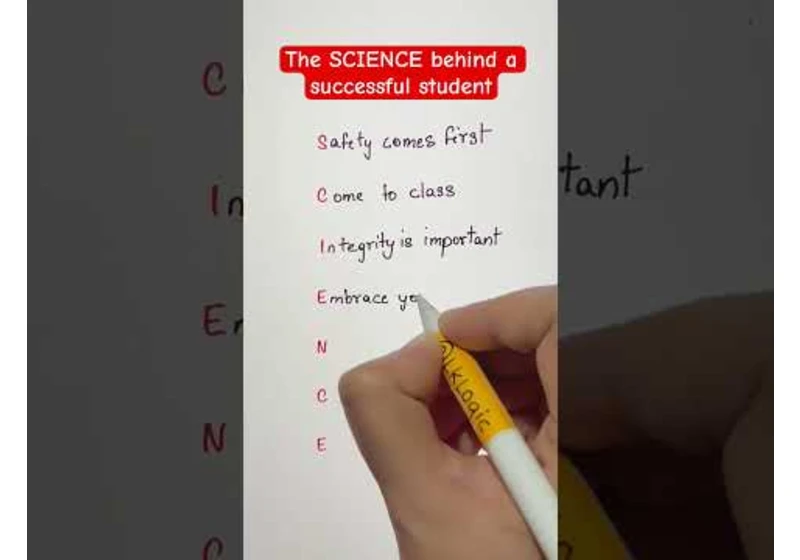 The SCIENCE behind a
successful student
Safety comes first
Come to class
Integrity is important
Embrace yo
N
C
E
@LKLogic
C
In
tant
Er
N
C